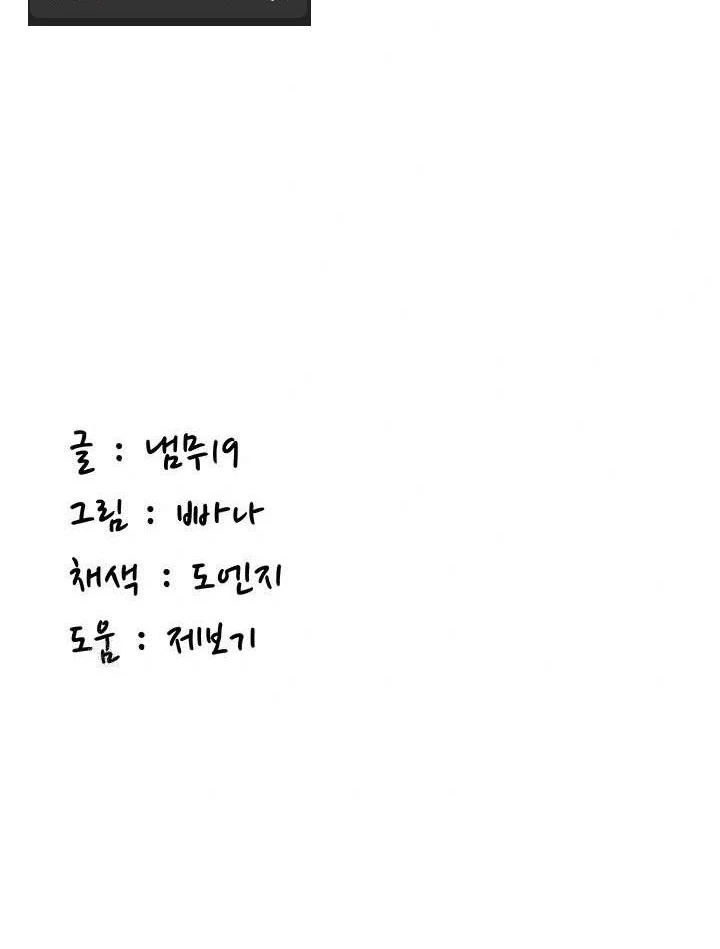 글 : 냄뮤19
그림 : 빠나
채색 : 도엔지
도움 : 제보기